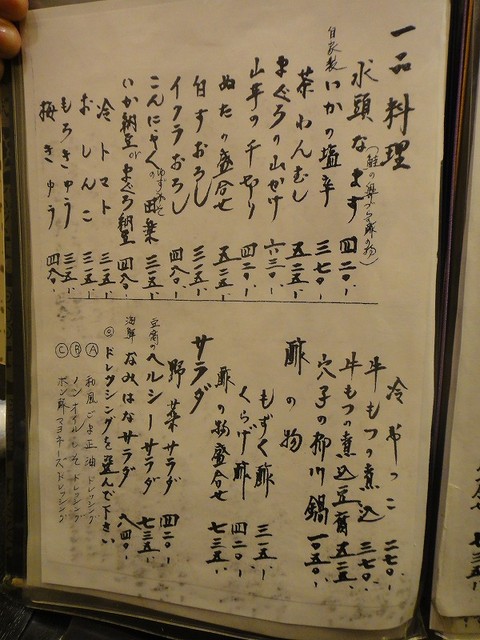 一品料理
氷頭なます 四二〇、
(鮭の鼻づら酢の物)
自家製いかの塩辛 三七〇、
茶わんむし 五二五、
まぐろの山かけ 六三〇、
山芋の千切り 四二〇、
ぬたの盛合せ 五二五、
白すおろし 三一五、
イクラおろし 四八〇、
こんにゃくのゆずみそ田楽 三一五、
いか納豆orまぐろ納豆 四八〇、
冷トマト 三一五、
おしんこ 三一五、
もろきゅう 三一五、
梅きゅう 四八〇、
冷やっこ 二七〇、
牛もつの煮込 三七〇、
牛もつの煮込豆腐 五二五、
穴子の柳川鍋 一〇五〇、
酢の物
もずく酢 三一五、
くらげ酢 四二〇、
酢の物盛合せ 七三五、
サラダ
野菜サラダ 四二〇、
豆腐のヘルシーサラダ 七三五、
海鮮なみはなサラダ 八四〇、
◎ドレッシングを選んで下さい
Ⓐ 和風ごま正油ドレッシング
Ⓑ ノンオイルしそドレッシング
Ⓒ ポン酢マヨネーズドレッシング
七三五、